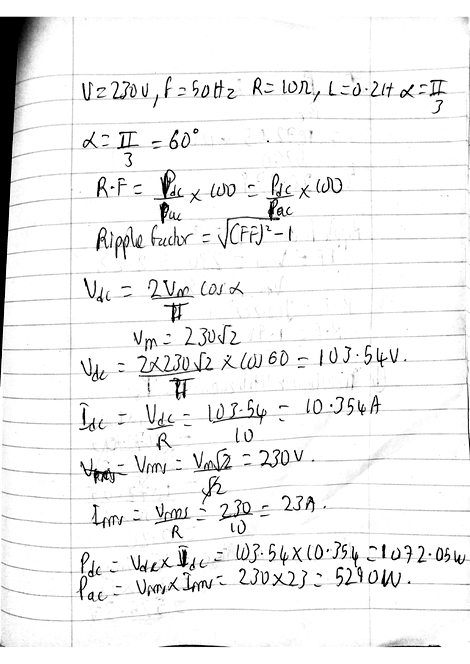 V=230V, f=50Hz R=10Ω, L=0.2H α=π/3
α=π/3 = 60°
R.F = Pdc/Pac × 100 = Pdc/Pac × 100
Ripple factor = √(FF)²-1
Vdc = 2Vm/π cosα
Vm = 230√2
Vdc = 2×230√2/π × cos 60 = 103.54V.
Idc = Vdc/R = 103.54/10 = 10.354A
Vrms = Vm√2/√2 = 230V.
Irms = Vrms/R = 230/10 = 23A.
Pdc = Vdc × Idc = 103.54×10.354 = 1072.05W
Pac = Vrms × Irms = 230×23 = 5290W.